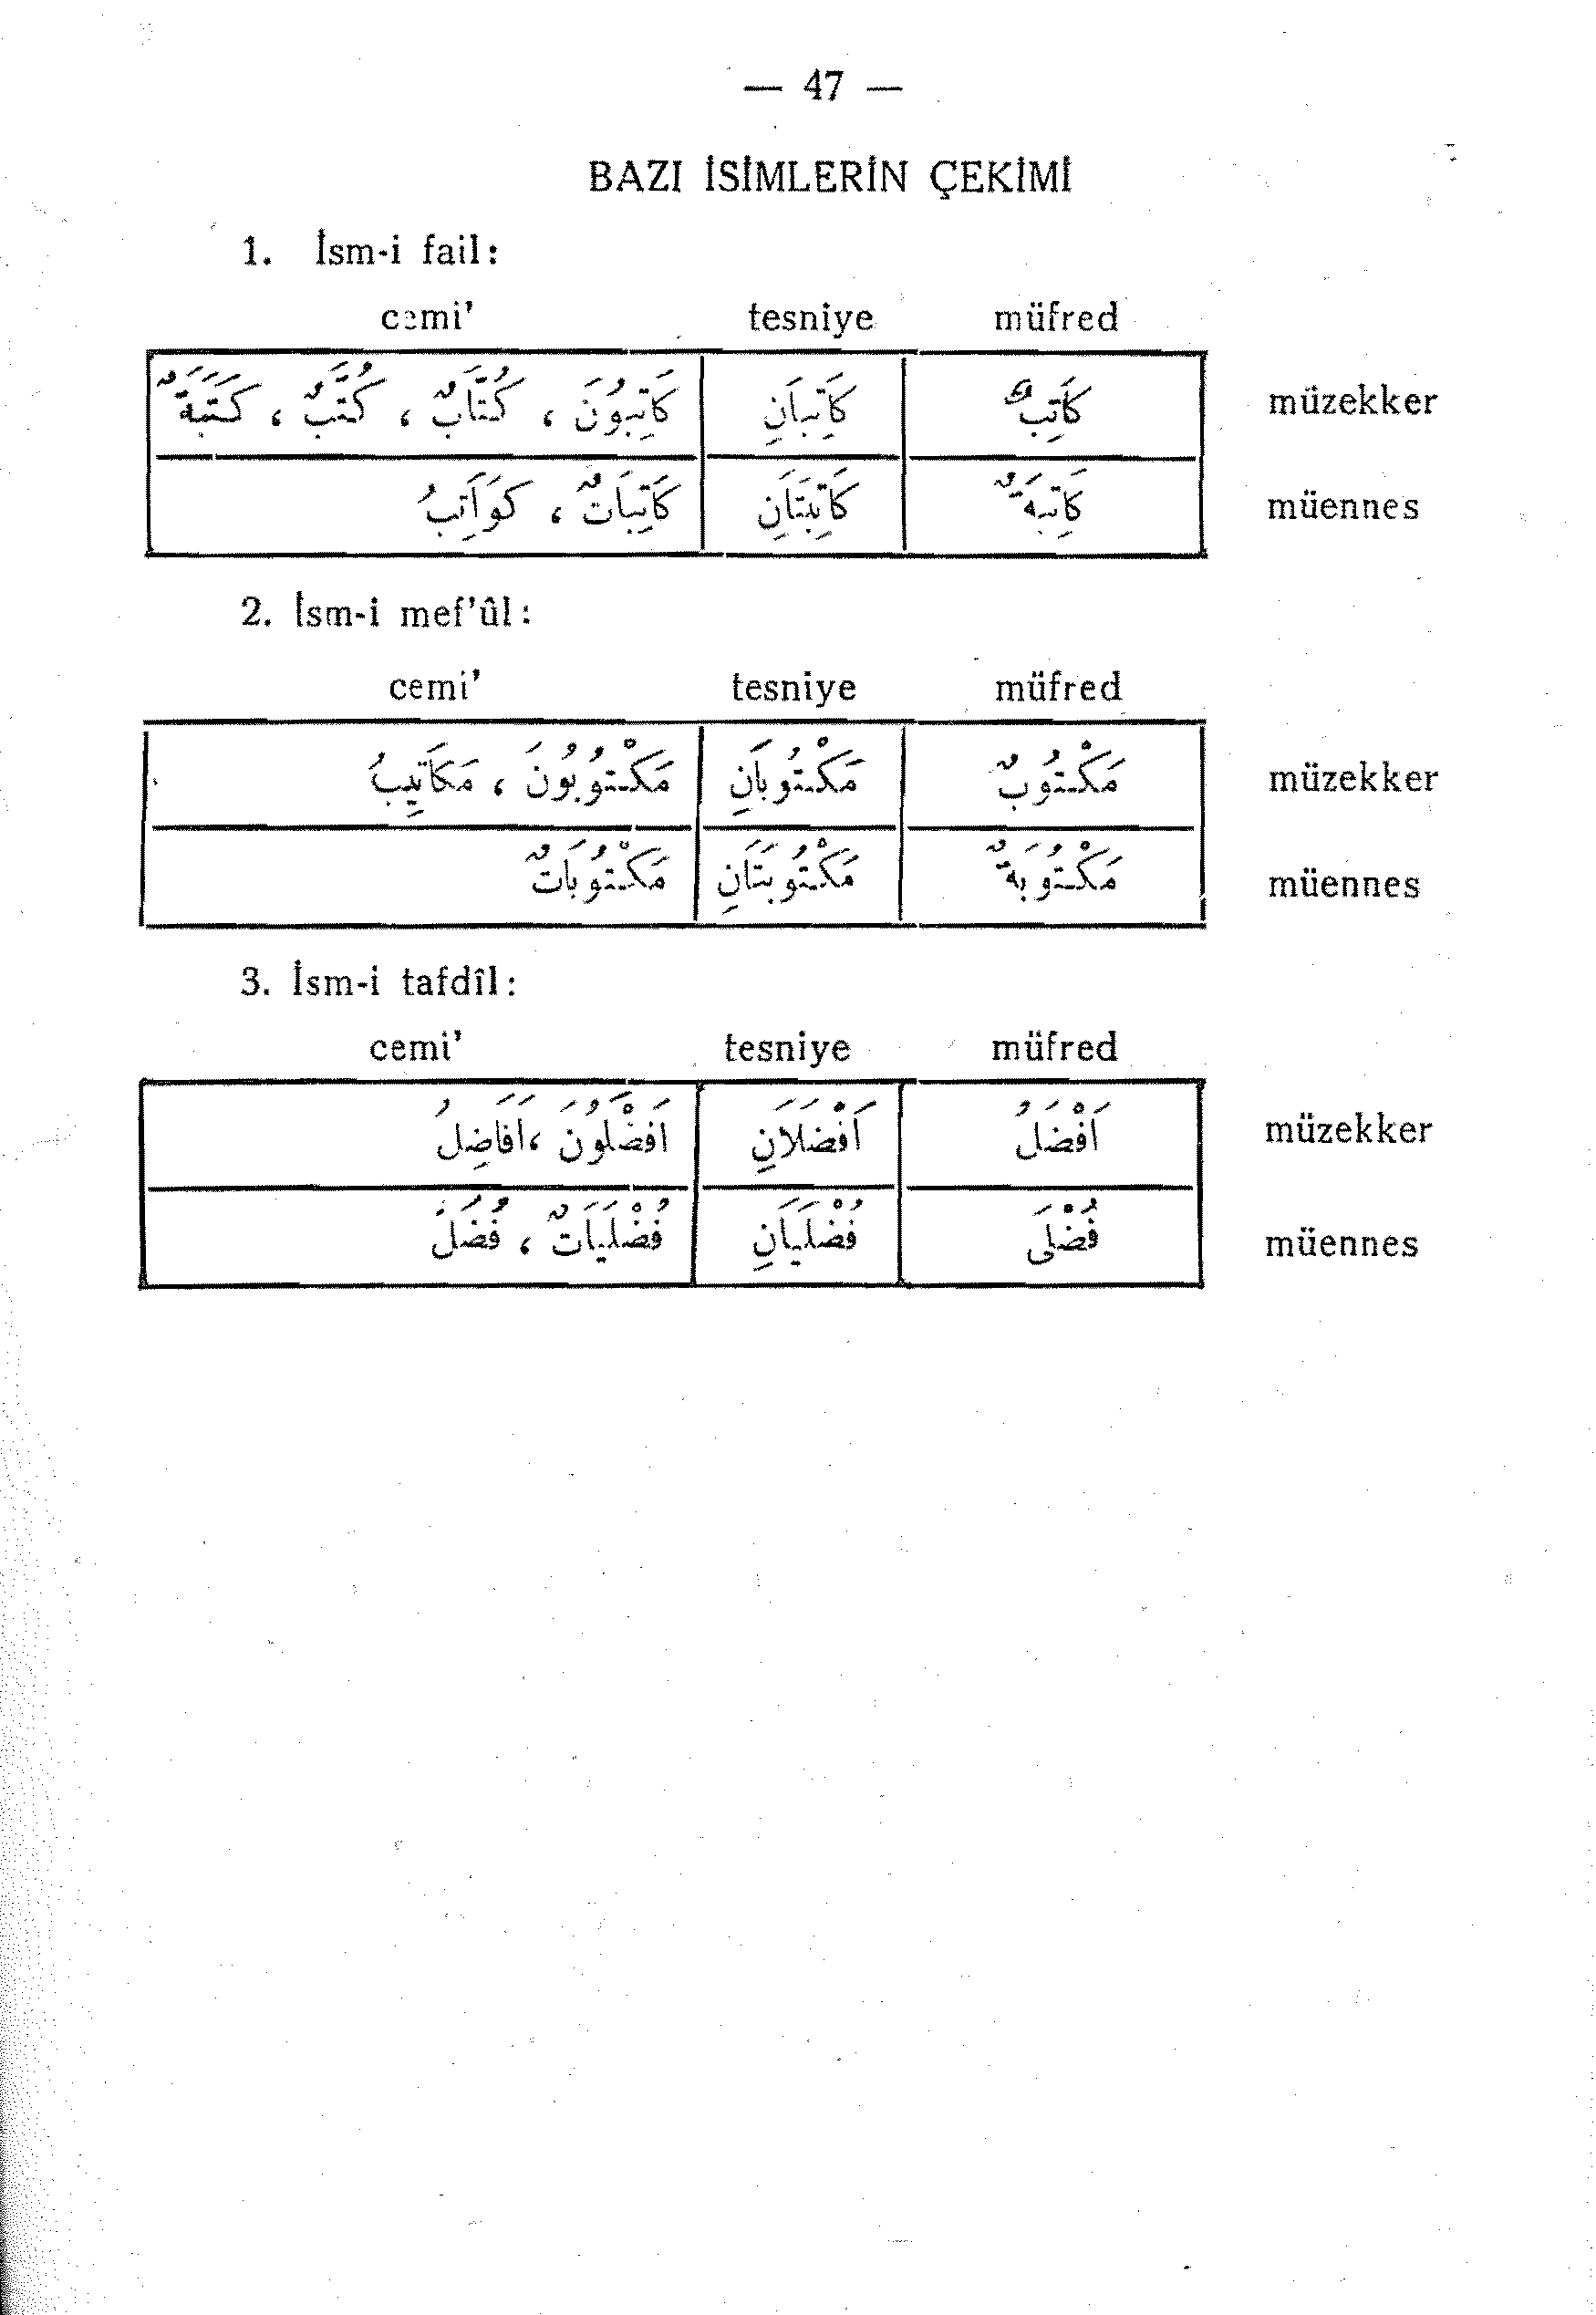 — 47 —
BAZI İSİMLERİN ÇEKİMİ
1. İsm-i fail:
cemi' tesniye müfred
كَاتِبٌ كَاتِبَانِ كَاتِبُونَ ، كُتَّابٌ ، كُتَّبٌ ، كَتَبَةٌ müzekker
كَاتِبَةٌ كَاتِبَتَانِ كَاتِبَاتٌ ، كَوَاتِبُ müennes
2. İsm-i mef'ûl:
cemi' tesniye müfred
مَكْتُوبٌ مَكْتُوبَانِ مَكْتُوبُونَ ، مَكَاتِيبُ müzekker
مَكْتُوبَةٌ مَكْتُوبَتَانِ مَكْتُوبَاتٌ müennes
3. İsm-i tafdîl:
cemi' tesniye müfred
اَفْضَلُ اَفْضَلَانِ اَفْضَلُونَ ، اَفَاضِلُ müzekker
فُضْلَى فُضْلَيَانِ فُضْلَيَاتٌ ، فُضَلُ müennes